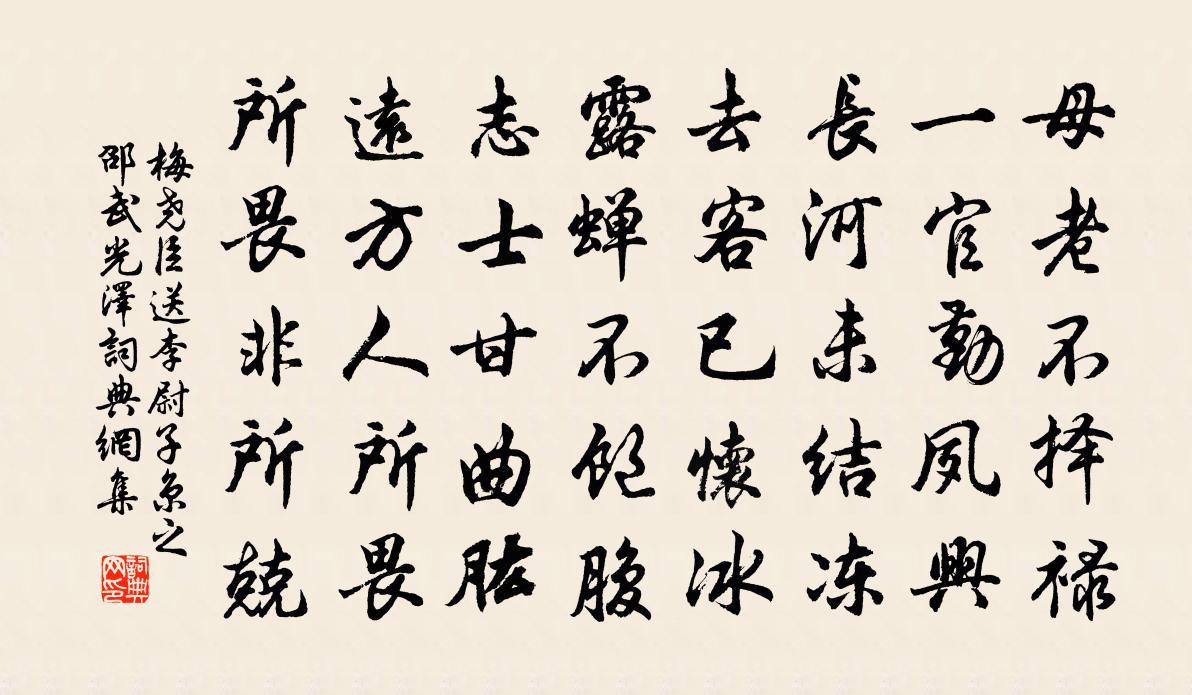 母老不择禄
一官勤夙興
長河未结冻
去客已懷冰
露蝉不饱腹
志士甘曲肱
遠方人所畏
所畏非所兢
梅尧臣送李尉子京之
邵武光澤詞典網集
詞典
网印